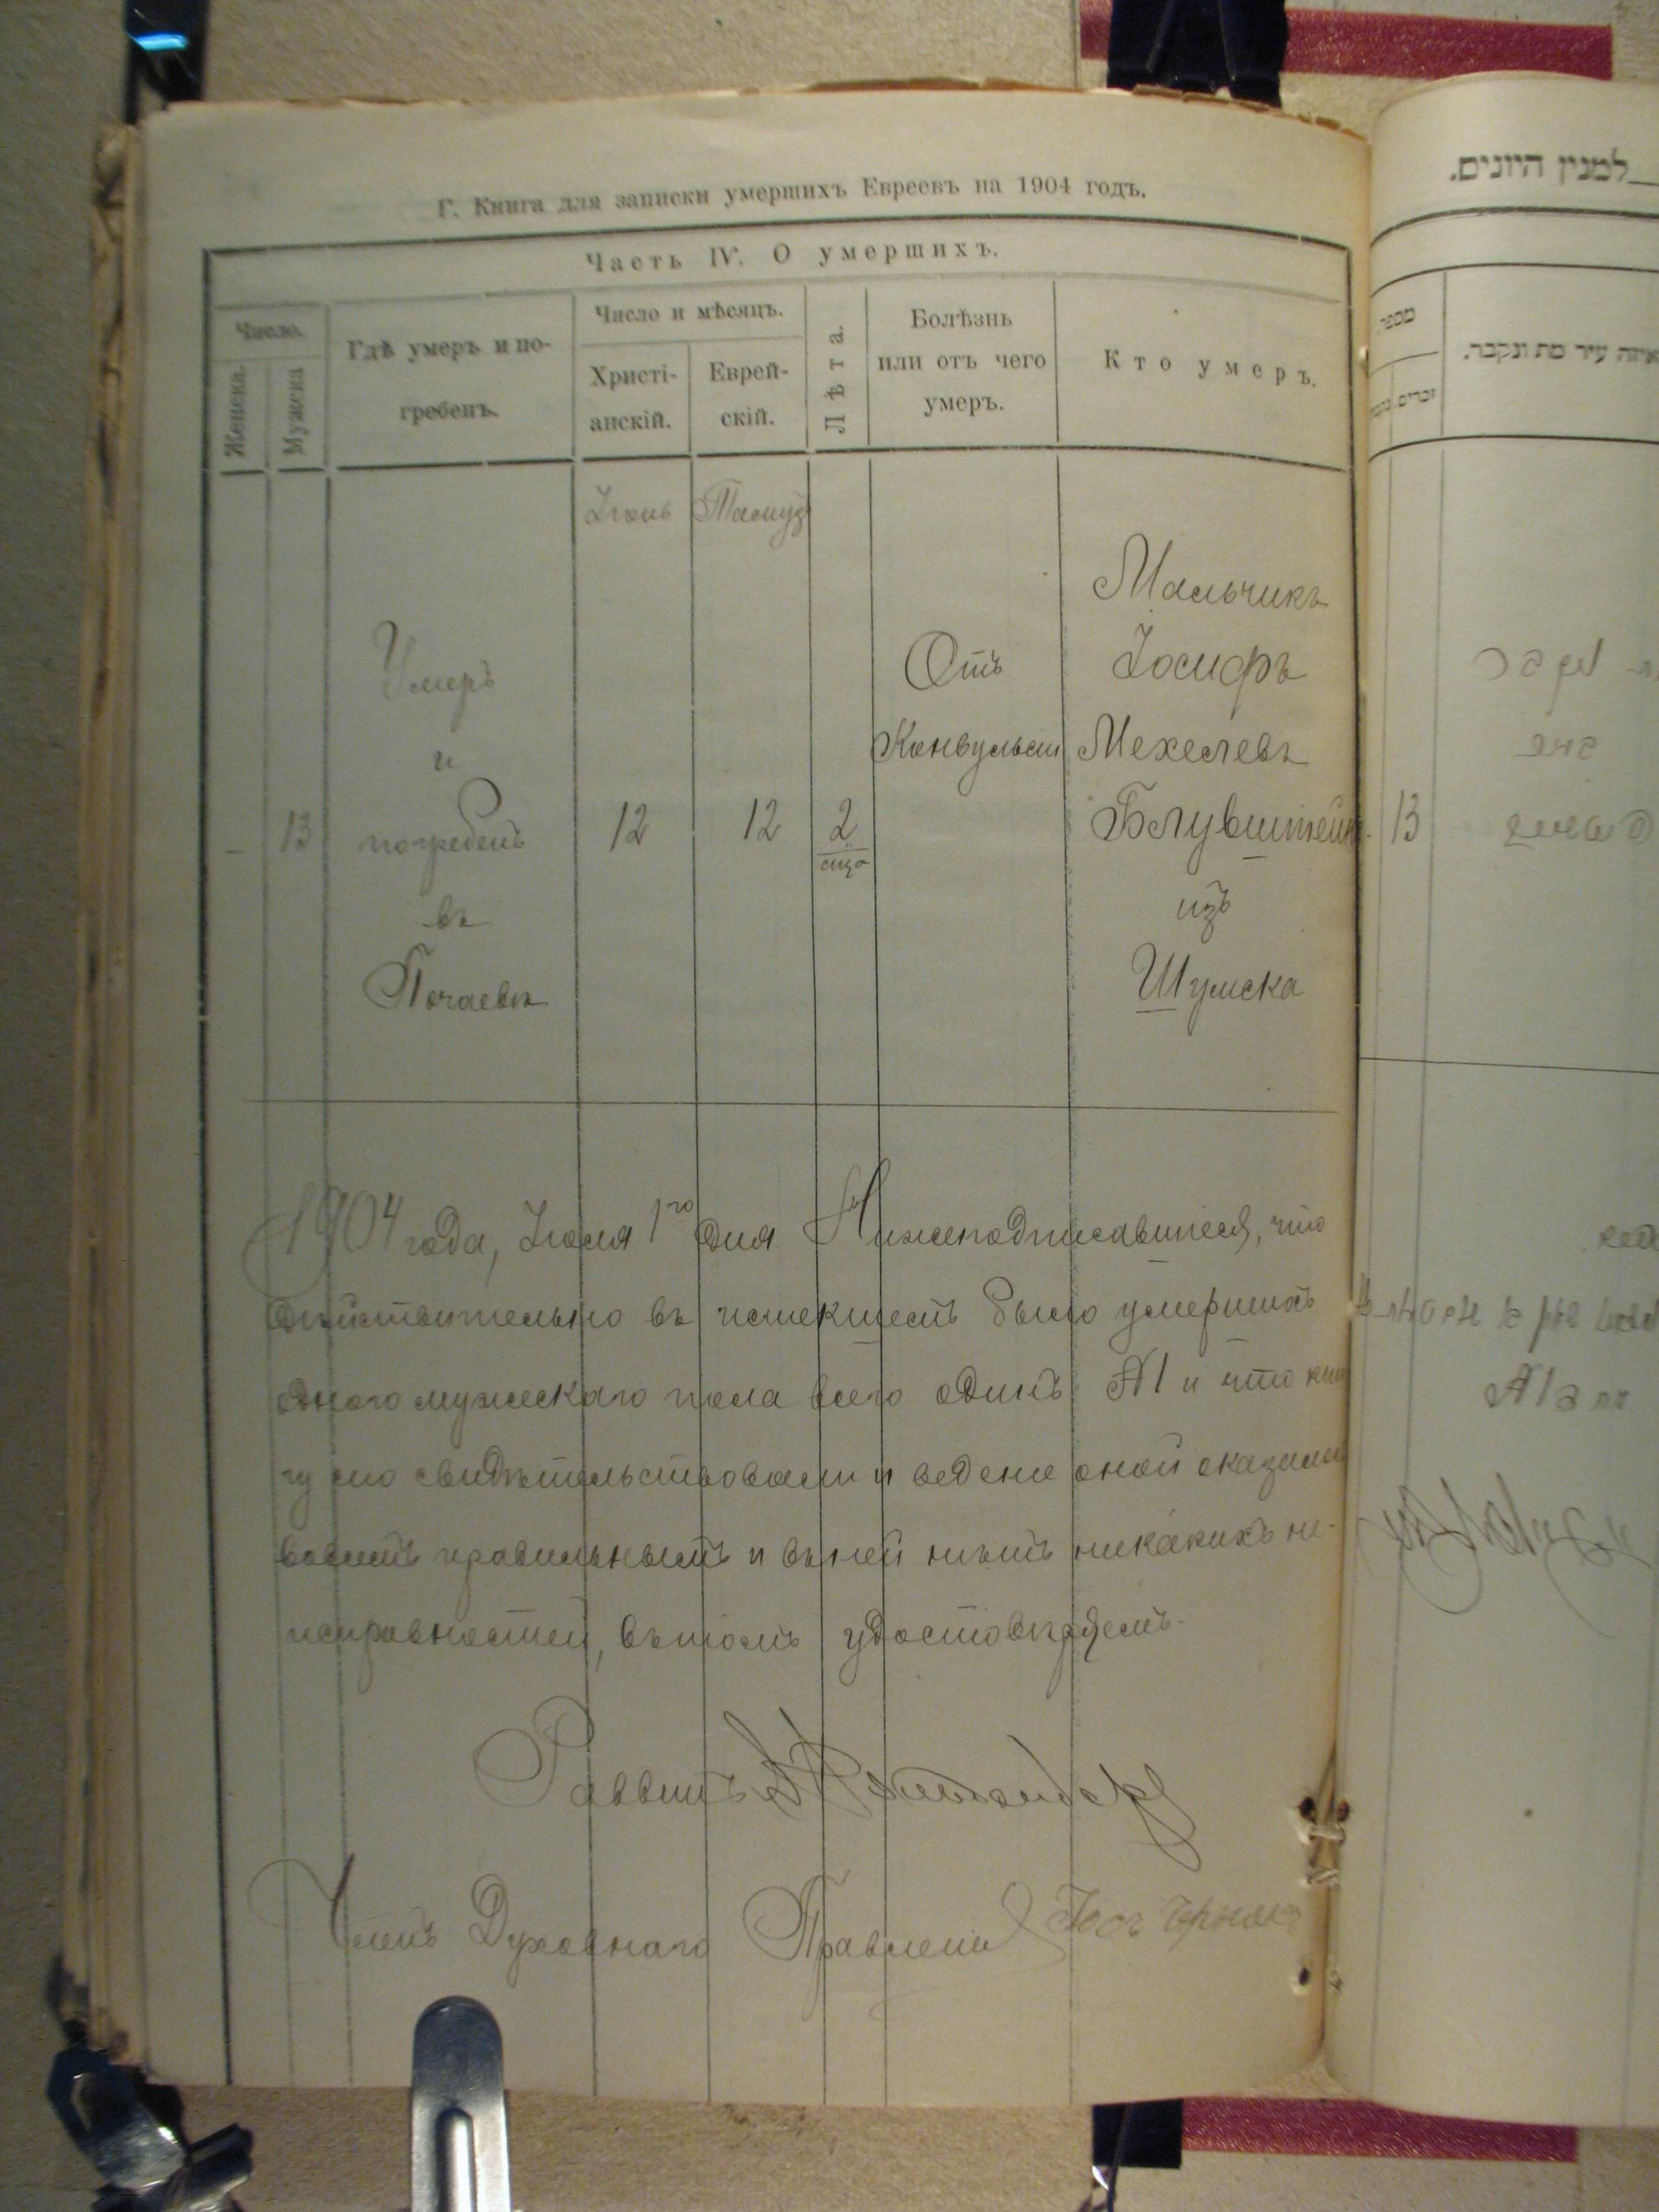 Г. Книга для записки умершихъ Евреевъ на 1904 годъ.
Часть IV. О умершихъ.
Число.
Женска.
Мужска
Гдѣ умеръ и по-
гребенъ.
Число и мѣсяцъ.
Христі-
анскій.
Еврей-
скій.
Лѣта.
Болѣзнь
или отъ чего
умеръ.
Кто умеръ.
Іюнь Тамузъ
Мальчикъ
Умеръ Отъ Іосифъ
и Конвульсіи Мехелевъ
– 13 погребенъ 12 12 2 Блувштейнъ
въ изъ
Почаевѣ Шумска
1904 года, Іюля 1го дня Нижеподписавшіеся, что
дѣйствительно въ истекшемъ было умершихъ
одного мужескаго пола всего одинъ №1 и что кни
гу сію свидѣтельствовали и веденіе оной
правильнымъ и въ ней нѣтъ никакихъ не-
исправностей, въ томъ удостовѣряемъ.
Раввинъ
Членъ Духовнаго Правленія
למנין היונים.
מספר
זכרים
איזה עיר מת ונקבר.
13